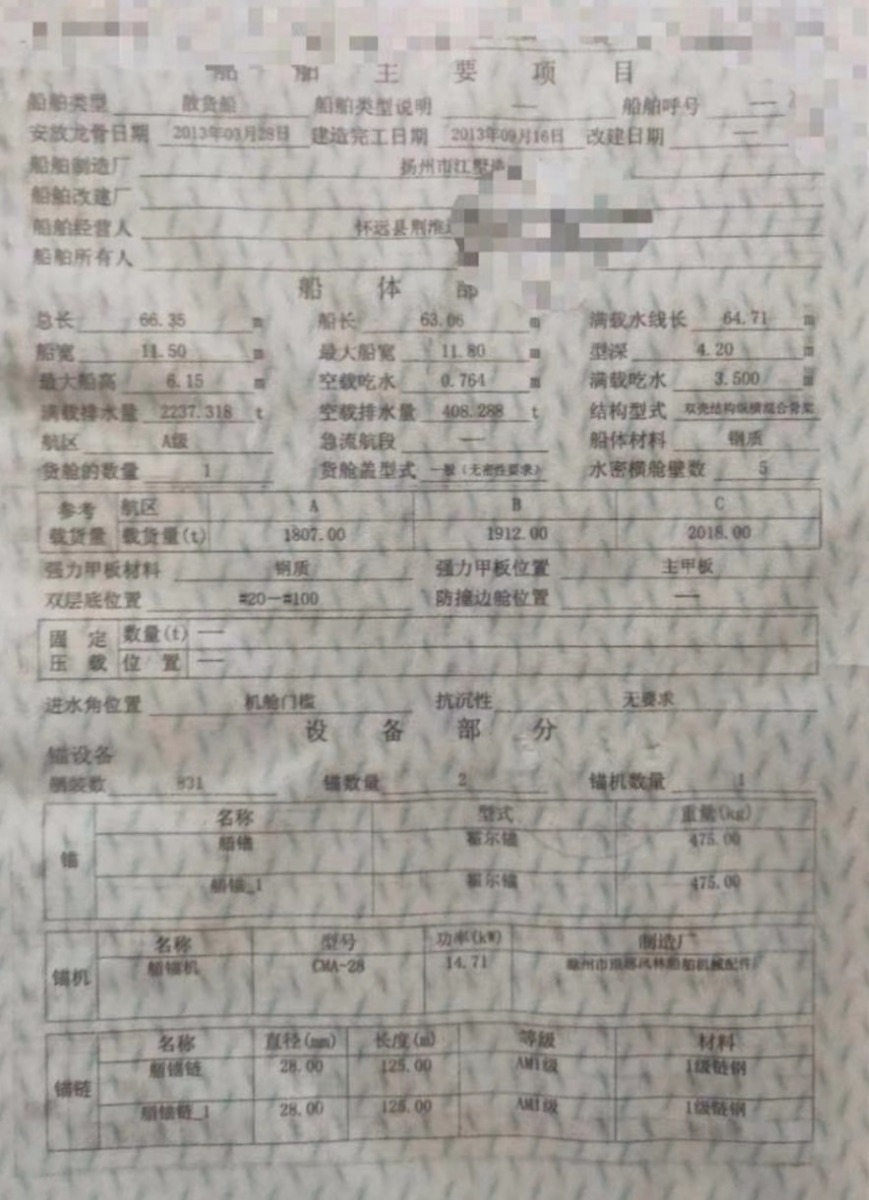 船 舶 主 要 项 目
船舶类型 散货船 船舶类型说明 — 船舶呼号 —
安放龙骨日期 2013年03月28日 建造完工日期 2013年09月16日 改建日期 —
船舶制造厂 扬州市江
船舶改建厂
船舶经营人 怀远县荆淮
船舶所有人
船 体 部
总长 66.35 m 船长 63.06 m 满载水线长 64.71 m
船宽 11.50 m 最大船宽 11.80 m 型深 4.20 m
最大船高 6.15 m 空载吃水 0.764 m 满载吃水 3.500 m
满载排水量 2237.318 t 空载排水量 408.288 t 结构型式 双壳结构纵横混合骨架
航区 A级 急流航段 — 船体材料 钢质
货舱的数量 1 货舱盖型式 一般(无密性要求) 水密横舱壁数 5
参考 航区 A B C
载货量 载货量(t) 1807.00 1912.00 2018.00
强力甲板材料 钢质 强力甲板位置 主甲板
双层底位置 #20—#100 防撞边舱位置 —
固 定 数量(t) —
压 载 位 置 —
进水角位置 机舱门槛 抗沉性 无要求
设 备 部 分
锚设备
舾装数 831 锚数量 2 锚机数量 1
名称 型式 重量(kg)
锚 艏锚 霍尔锚 475.00
艏锚_1 霍尔锚 475.00
名称 型号 功率(kW) 制造厂
锚机 艏锚机 CMA-28 14.71 船舶机械配件厂
名称 直径(mm) 长度(m) 等级 材料
锚链 艏锚链 28.00 125.00 AM1级 1级链钢
艏锚链_1 28.00 125.00 AM1级 1级链钢